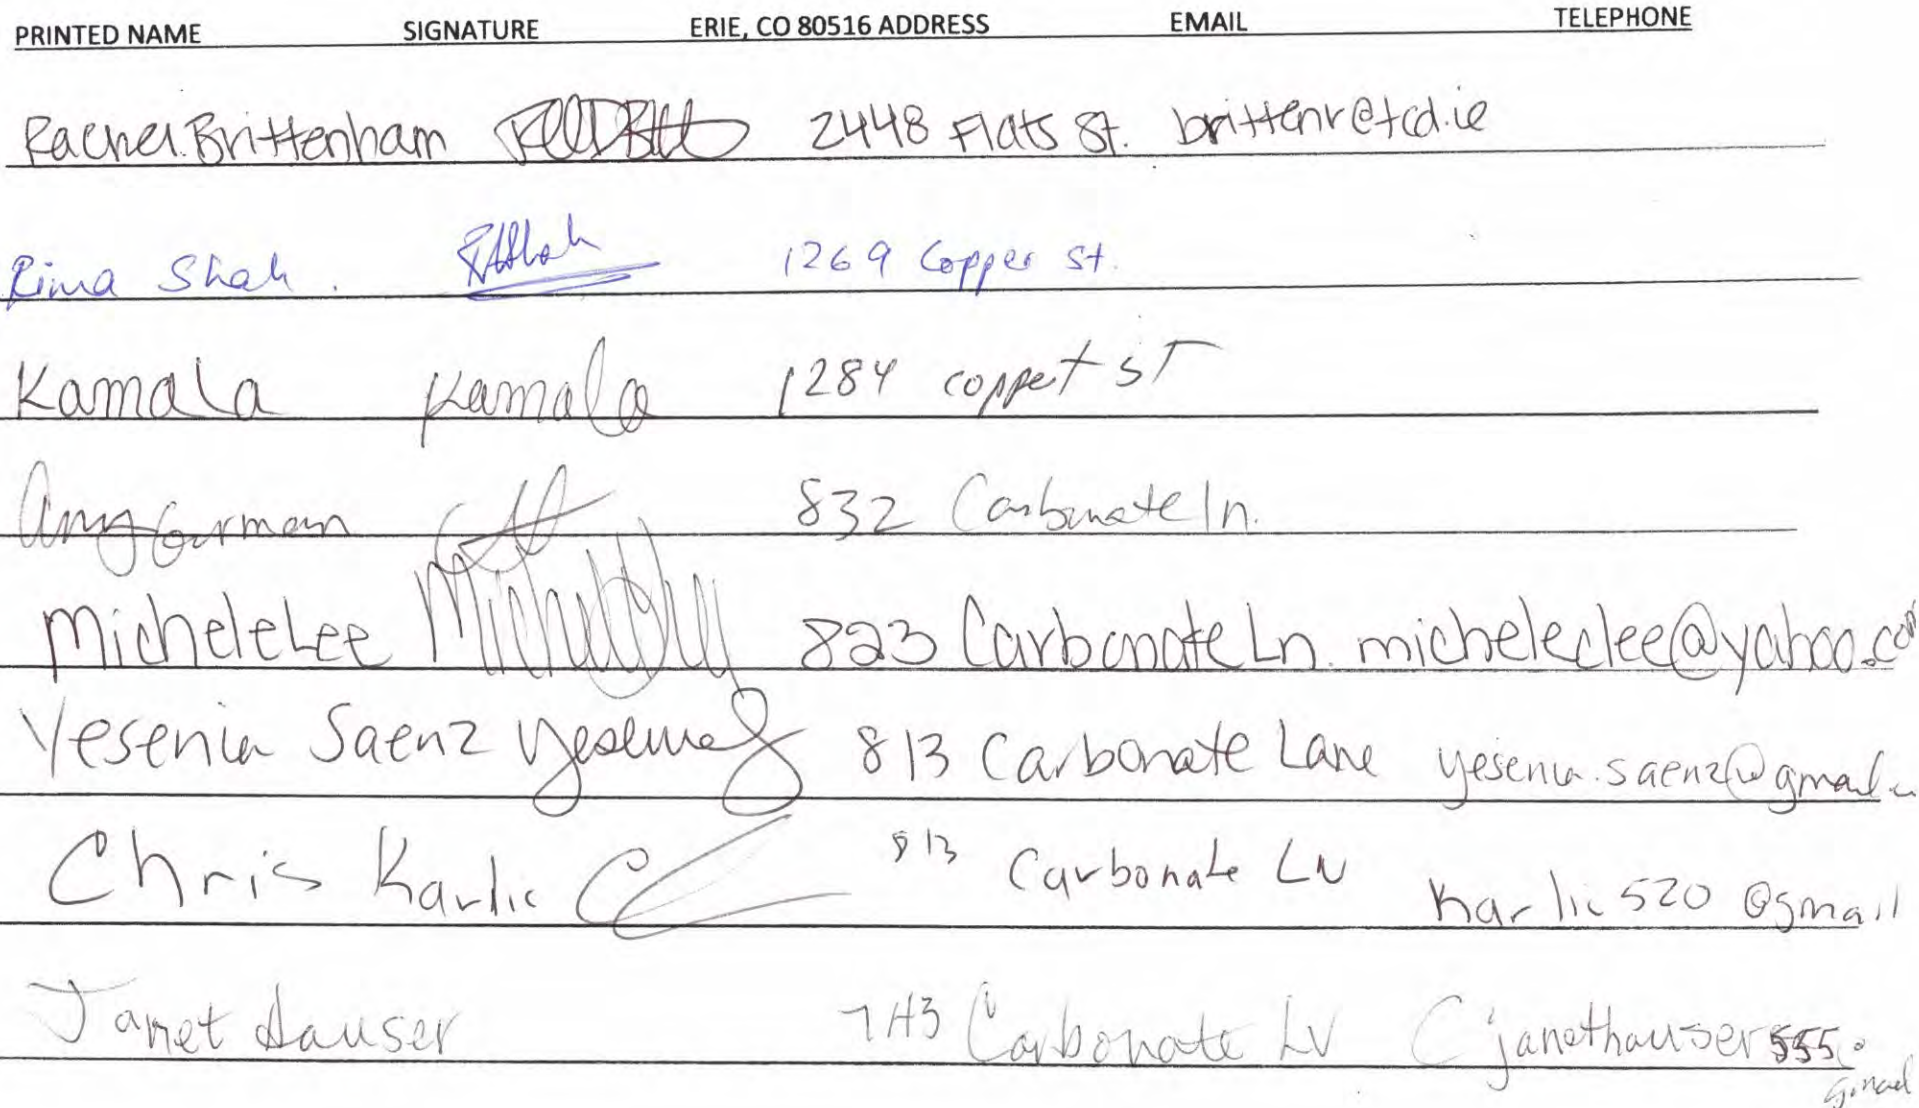 PRINTED NAME SIGNATURE ERIE, CO 80516 ADDRESS EMAIL TELEPHONE
Rachel Brittenham 2448 Flats St. brittenr@tcd.ie
Rima Shah. RAShah 1269 Copper St.
Kamala Kamala 1284 coppert ST
Amy Gorman 832 Carbonate ln.
Michele Lee 823 Carbonate Ln. micheleclee@yahoo.com
Yesenia Saenz 813 Carbonate Lane yesenia.saenz@gmail.
Chris Karlic 813 Carbonate LN Karlic520@gmail
Janet Hauser Carbonate LN janethauser555@
gmail